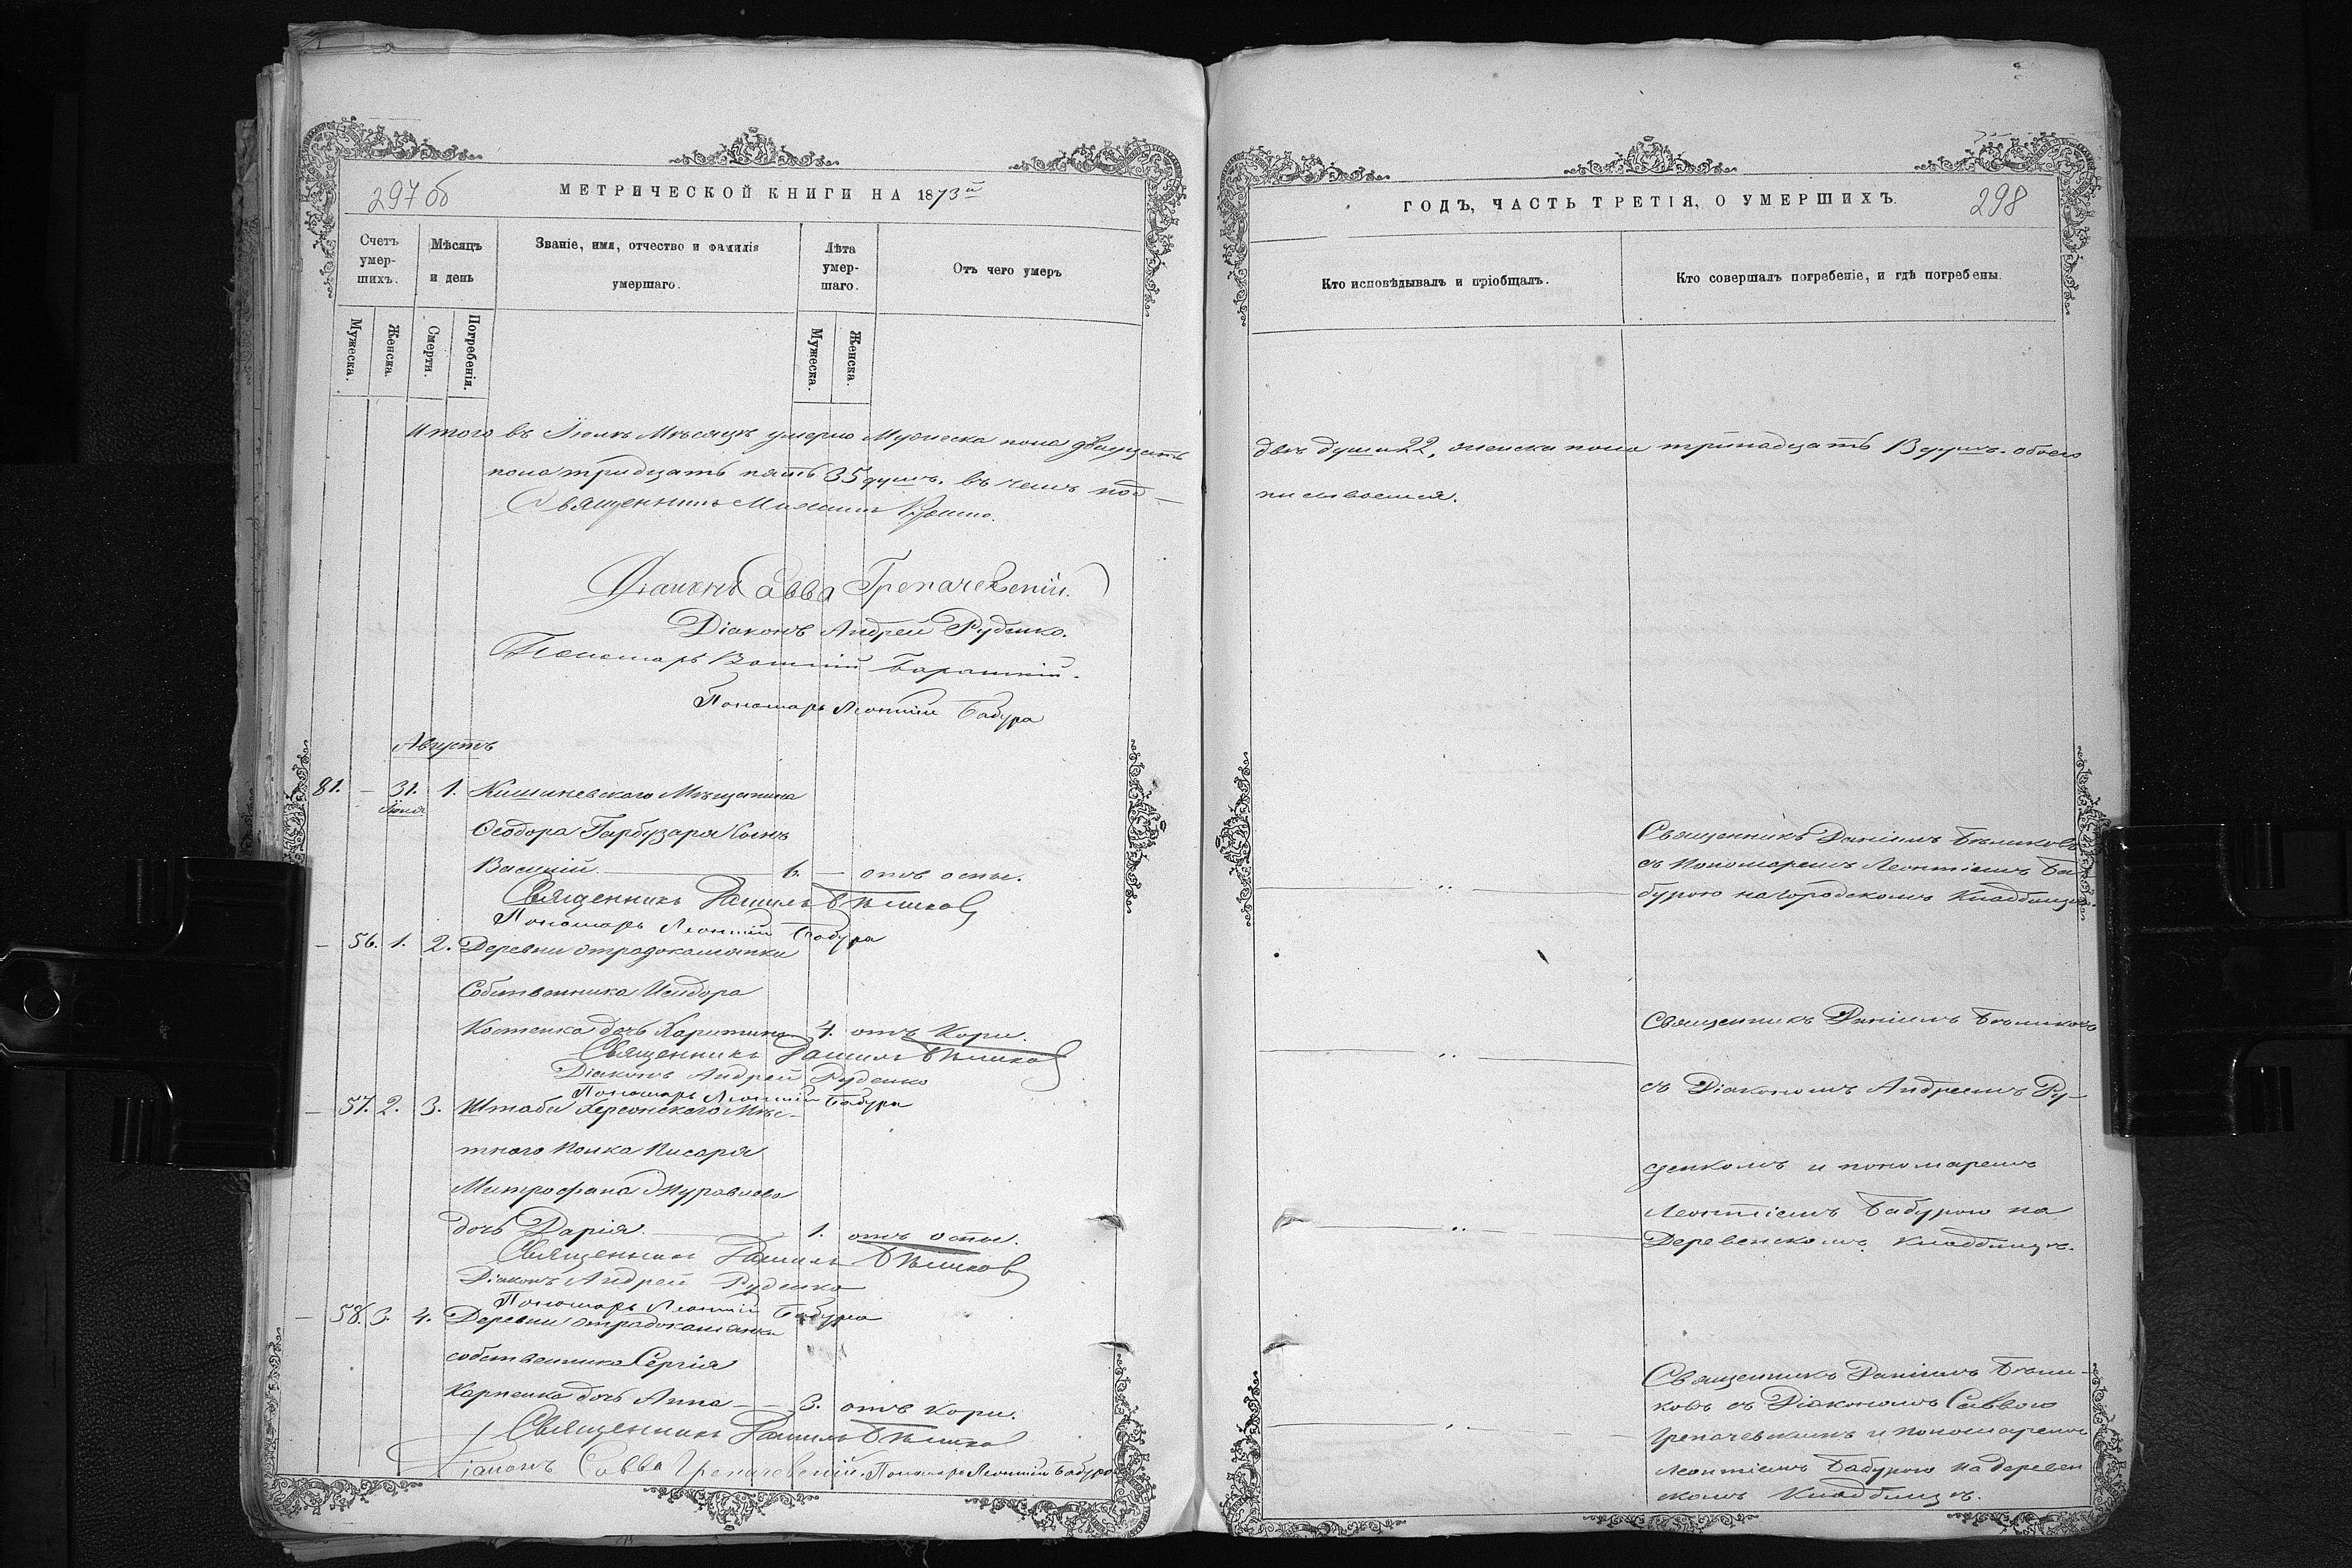 297 об
МЕТРИЧЕСКОЙ КНИГИ НА 1873й
Счетъ умер-шихъ.
Мѣсяцъ и день
Званіе, имя, отчество и фамилія умершаго.
Лѣта умер-шаго.
Отъ чего умеръ
Мужеска.
Женска.
Смерти.
Погребенія.
Мужеска.
Женска.
Итого въ Іюлѣ Мѣсяцѣ умерло Мужеска пола двадцать
пола тридцать пять 35 душъ. въ чемъ под-
Священникъ Михаилъ
Діаконъ Савва Грепачевскій.
Діаконъ Андрей Руденко.
Пономарь
Пономарь Леонтій Бабура
Августъ
81. — 31. 1. Кишиневского Мѣщанина
Іюля
Ѳеодора Гарбузаря сынъ
Василій. 6. — отъ оспы.
Священникъ Даніилъ Бѣликовъ
Пономарь Леонтій Бабура
— 56. 1. 2. Деревни Отрадокаменки
Собственника Исидора
Костенка дочь Харитина 4. отъ Кори.
Священникъ Даніилъ Бѣликовъ
Діаконъ Андрей Руденко
Пономарь Леонтій Бабура
— 57. 2. 3. Штаба Херсонского Мѣс-
тного Полка Писаря
Митрофана Муравлева
дочь Дарія. 1. отъ оспы.
Священникъ Даніилъ Бѣликовъ
Діаконъ Андрей Руденко
Пономарь Леонтій Бабура
— 58. 3. 4. Деревни Отрадокаменки
собственника Сергія
Карпенка дочь Анна — — 3. отъ кори.
Священникъ Даніилъ Бѣликовъ
Діаконъ Савва Грепачевскій. Пономарь Леонтій Бабура
298
ГОДЪ, ЧАСТЬ ТРЕТІЯ, О УМЕРШИХЪ.
Кто исповѣдывалъ и пріобщалъ.
Кто совершалъ погребеніе, и гдѣ погребены.
двѣ души 22, женска пола тринадцать 13 душъ. обоего
писываемся.
Священникъ Даніилъ Бѣликовъ
съ Пономаремъ Леонтіемъ Ба
бурою на городскомъ Кладбищѣ.
Священникъ Даніилъ Бѣликовъ
съ Діакономъ Андреемъ Ру-
денкомъ и пономаремъ
Леонтіемъ Бабурою на
Деревенскомъ Кладбищѣ.
Священникъ Даніилъ Бѣли-
ковъ съ Діакономъ Саввою
Грепачевскимъ и пономаремъ
Леонтіемъ Бабурою на деревен
скомъ Кладбищѣ.